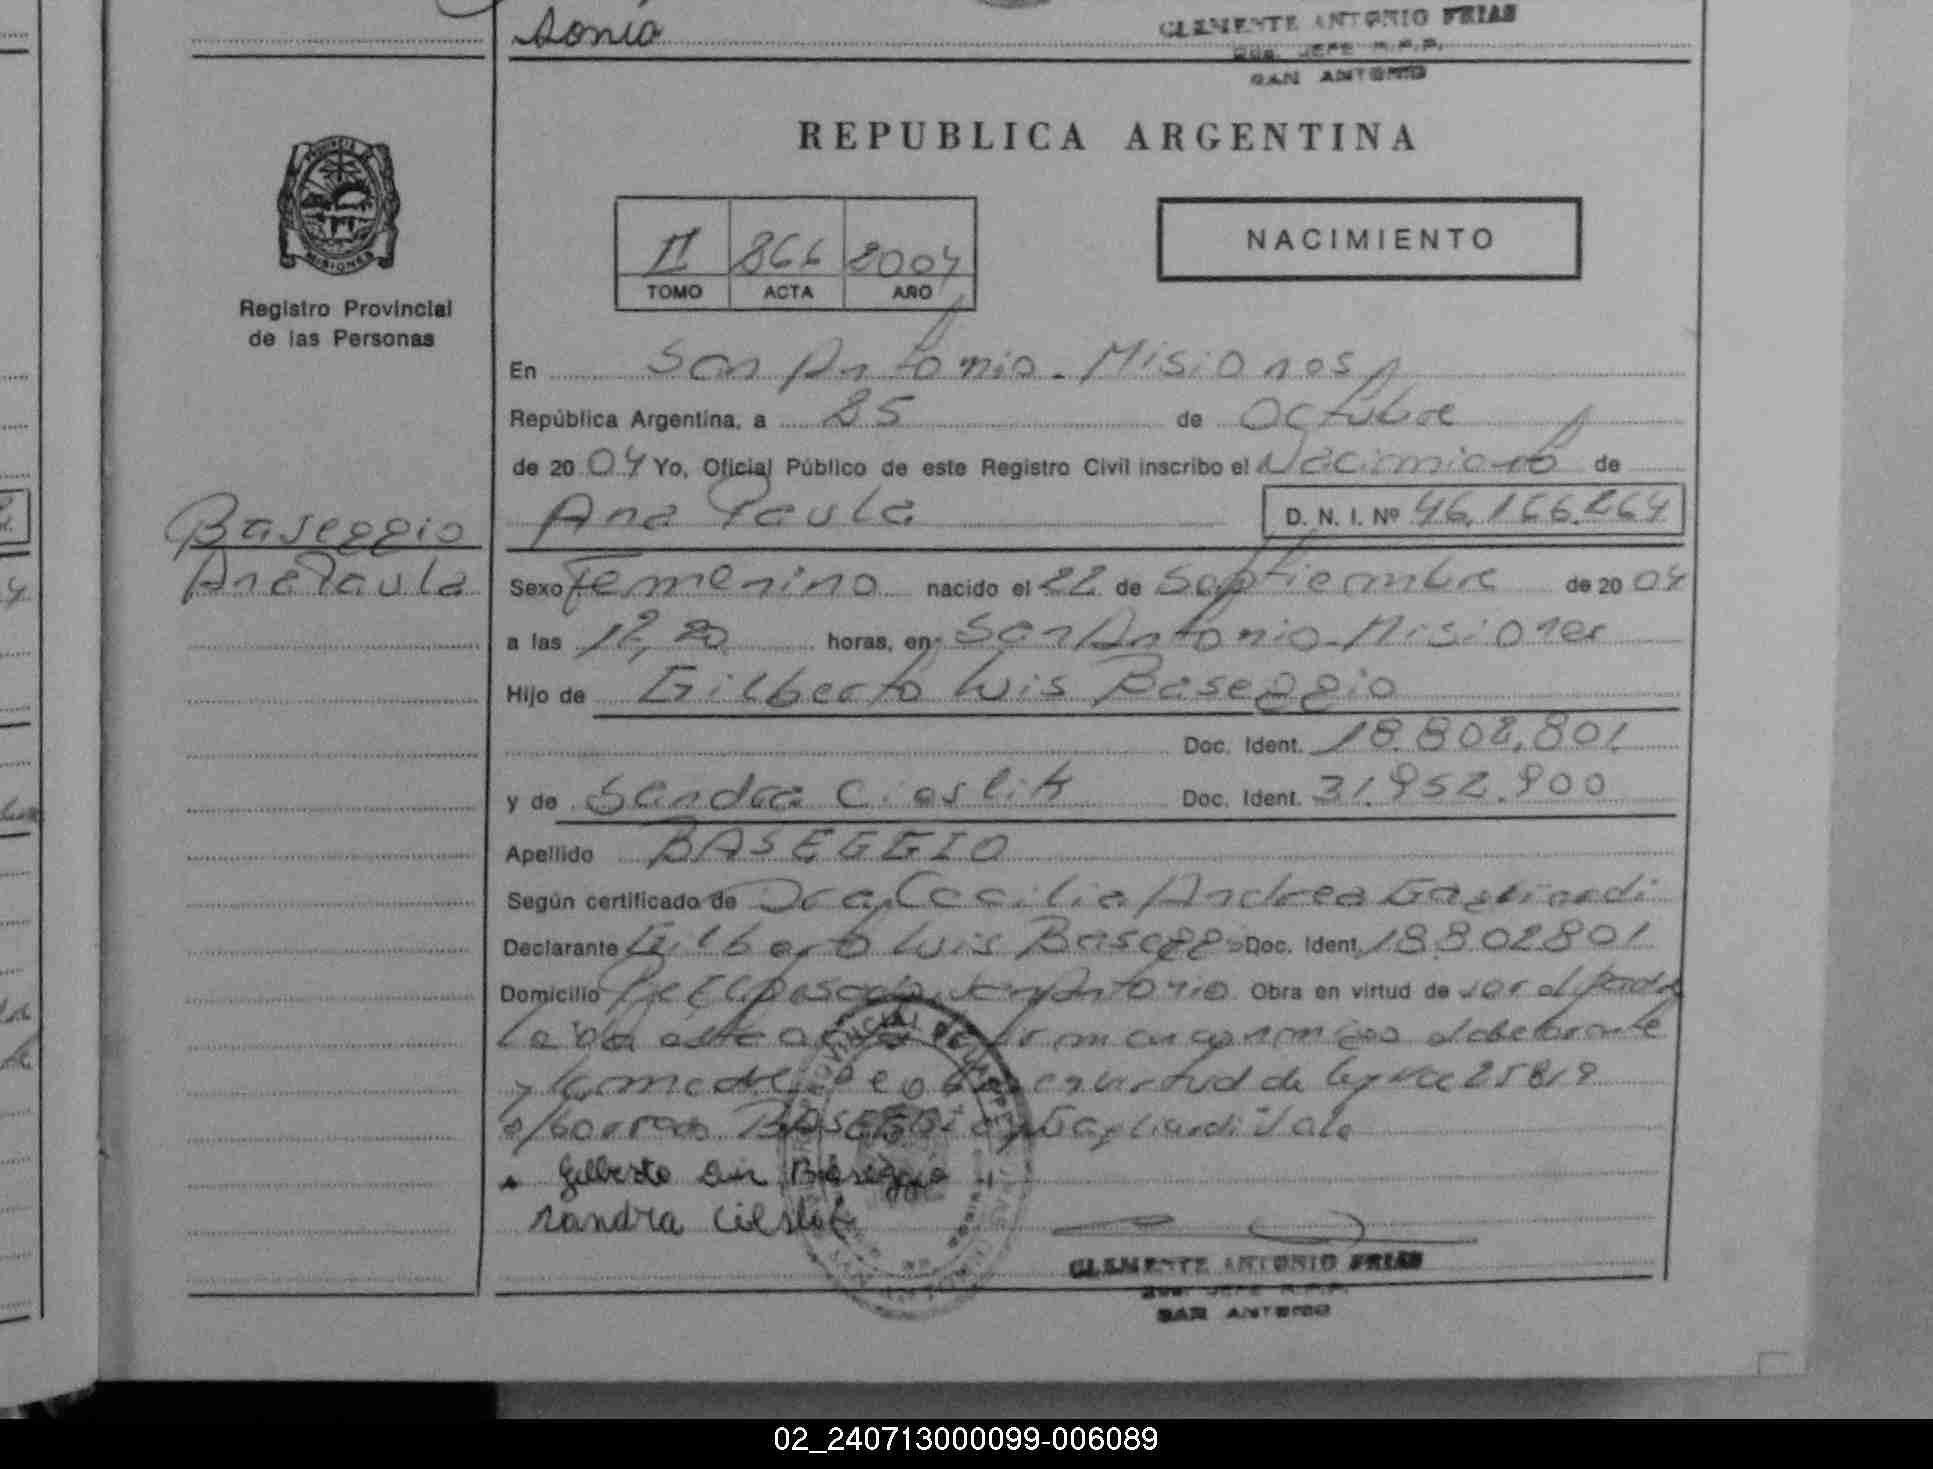 Sonia
CLEMENTE ANTONIO FRIAS
JEFE R.P.P.
SAN ANTONIO
REPUBLICA ARGENTINA
PROVINCIA DE
MISIONES
Registro Provincial
de las Personas
II 866 2004
TOMO ACTA AÑO
NACIMIENTO
En San Antonio - Misiones
República Argentina, a 25 de Octubre
de 2004 Yo, Oficial Público de este Registro Civil inscribo el Nacimiento de
Baseggio
Ana Paula
Ana Paula D. N. I. Nº 46.166.264
Sexo Femenino nacido el 22 de Septiembre de 2004
a las 12,20 horas, en San Antonio - Misiones
Hijo de Gilberto Luis Baseggio
Doc. Ident. 18.802.801
y de Sandra Cieslik Doc. Ident. 31.952.900
Apellido BASEGGIO
Según certificado de Dra. Cecilia Andrea Gagliardi
Declarante Gilberto Luis Baseggio Doc. Ident. 18.802801
Domicilio San Antonio Obra en virtud de ser el padre
Leída este acta firman conmigo el declarante
y la madre en virtud de ley Nº 25819
s/borrado BASEGGIO Gagliardi Vale
Gilberto Luis Baseggio
Sandra Cieslik
CLEMENTE ANTONIO FRIAS
JEFE R.P.P.
SAN ANTONIO
02_240713000099-006089